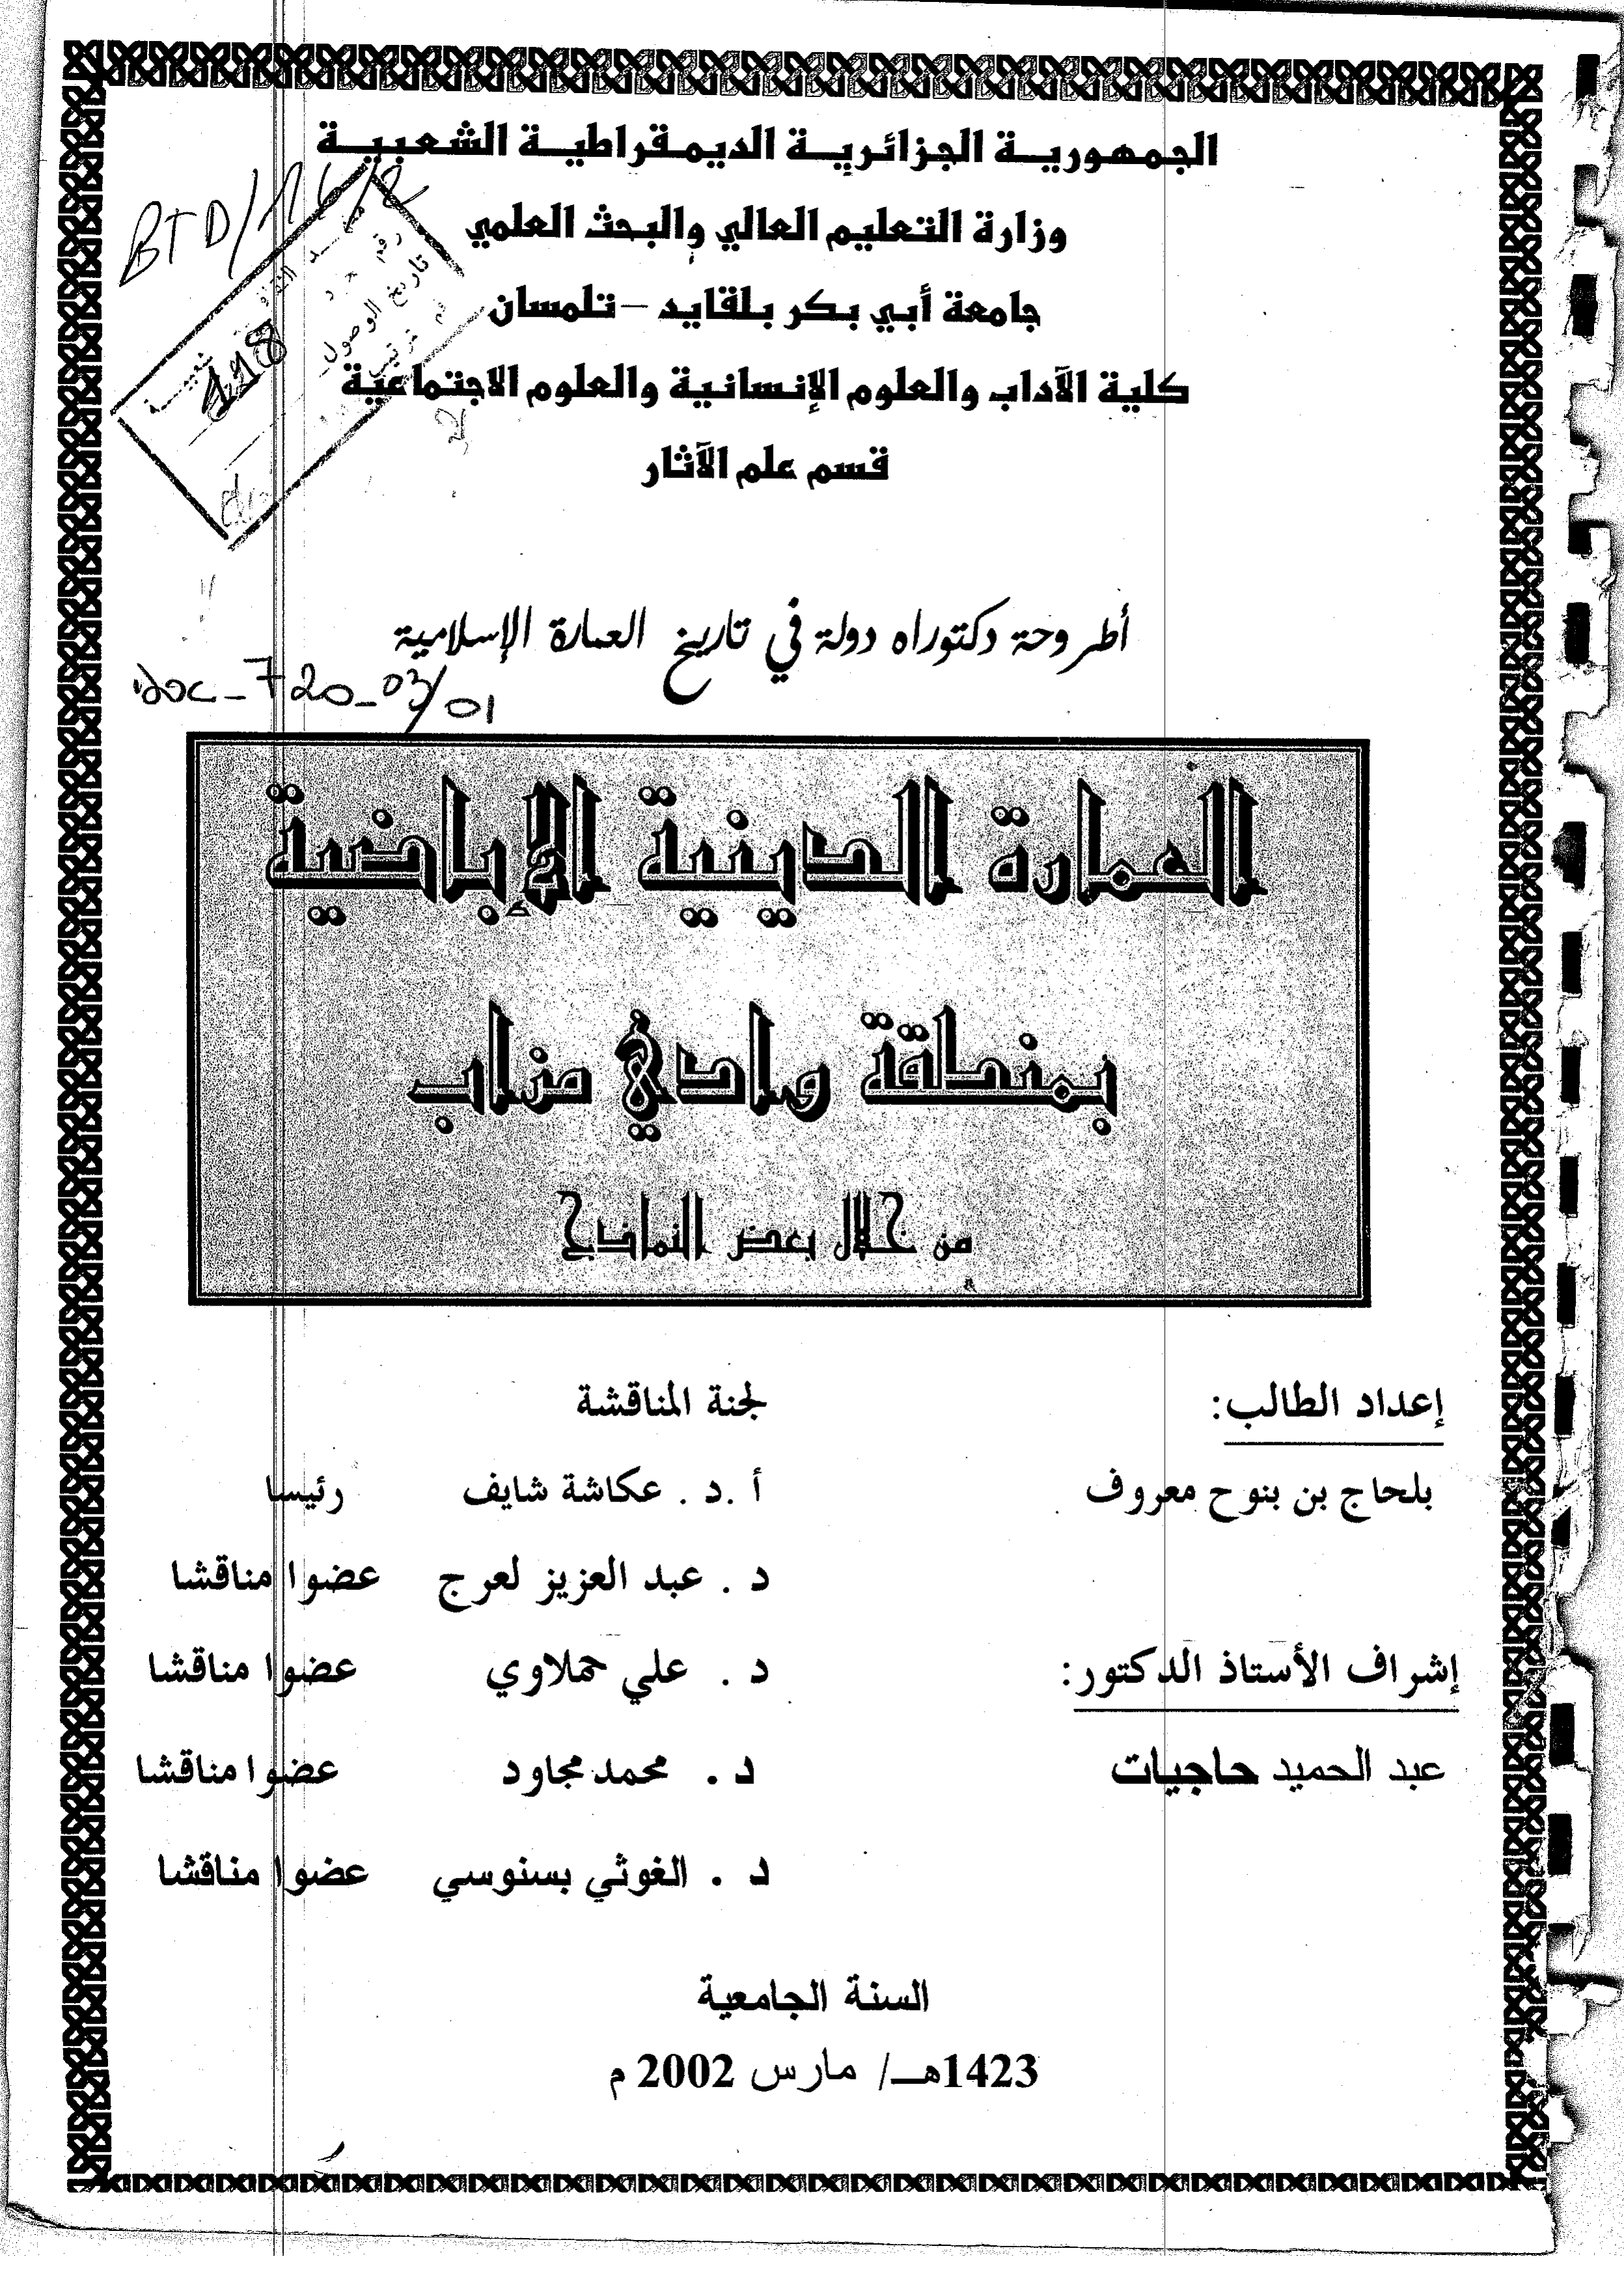 الجمهورية الجزائرية الديمقراطية الشعبية
وزارة التعليم العالي والبحث العلمي
جامعة أبي بكر بلقايد – تلمسان
كلية الآداب والعلوم الإنسانية والعلوم الاجتماعية
قسم علم الآثار
BTD/
رقم
تاريخ الوصول
118
أطروحة دكتوراه دولة في تاريخ العمارة الإسلامية
doc_720_03/01
العمارة الدينية الإباضية
بمنطقة وادي مزاب
من خلال بعض النماذج
إعداد الطالب:
بلحاج بن بنوح معروف
إشراف الأستاذ الدكتور:
عبد الحميد حاجيات
لجنة المناقشة
أ .د . عكاشة شايف رئيسا
د . عبد العزيز لعرج عضوا مناقشا
د . علي حملاوي عضوا مناقشا
د . محمد مجاود عضوا مناقشا
د . الغوثي بسنوسي عضوا مناقشا
السنة الجامعية
1423هـ/ مارس 2002 م